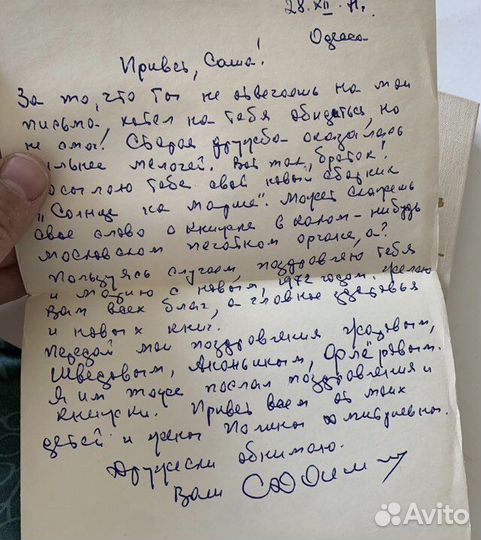 28.XII.71г.
Одесса
Привет, Саша!
За то, что ты не отвечаешь на мои
письма, хотел на тебя обидеться, но
не смог! Старая дружба оказалась
сильнее мелочей. Вот так, браток!
Посылаю тебе свой новый сборник
„Солнце на марше". Может скажешь
свое слово о книжке в каком-нибудь
московском печатном органе, а?
Пользуясь случаем, поздравляю тебя
и с новым, 1972 годом. Желаю
вам всех благ, а главное здоровья
и новых книг.
Передай мои поздравления Жаровым,
Шведовым, Ананьиным,
Я им тоже послал поздравления и
книжки. Привет всем от моих
детей и жены Полины
Дружески обнимаю.
Ваш
Avito